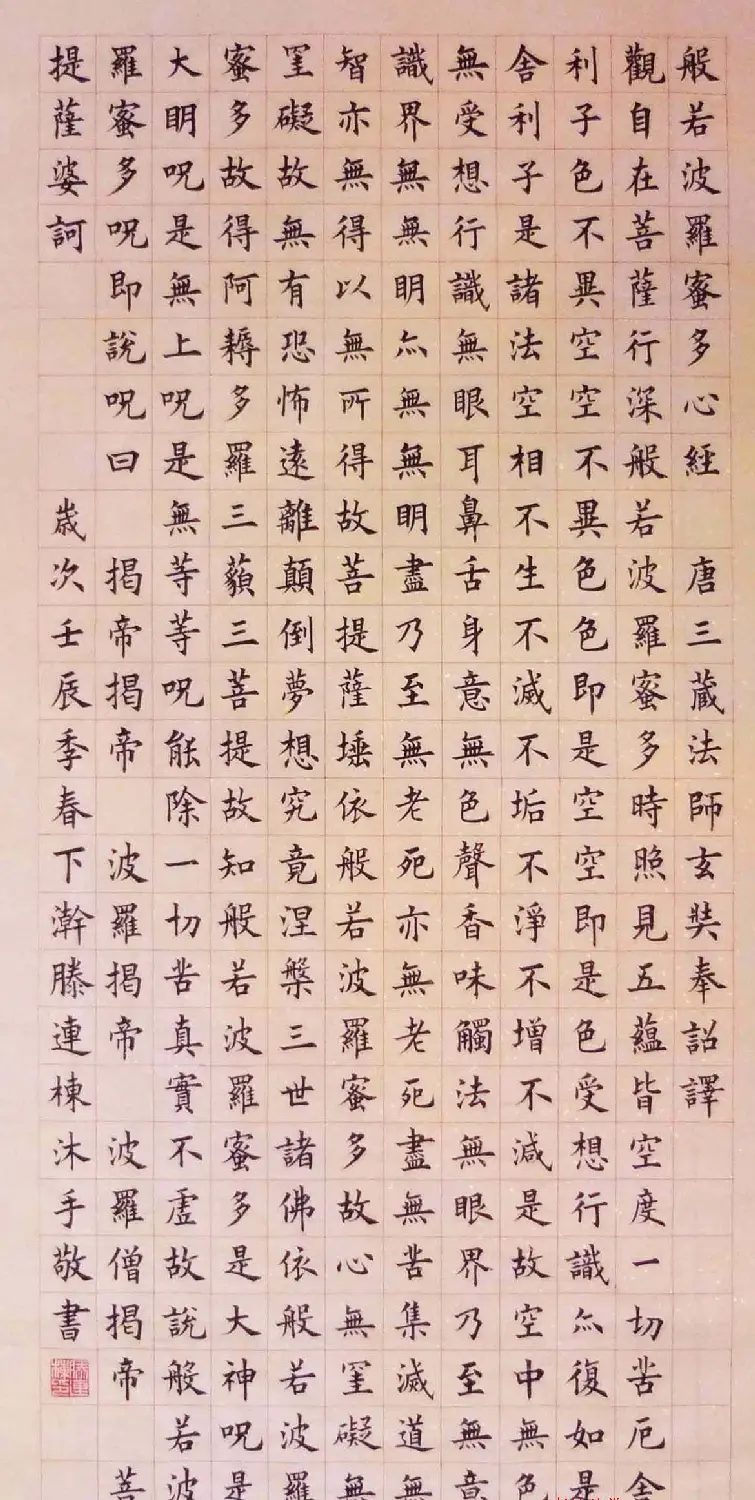 般若波羅蜜多心經 唐三藏法師玄奘奉詔譯
觀自在菩薩行深般若波羅蜜多時照見五蘊皆空度一切苦厄舍
利子色不異空空不異色色即是空空即是色受想行識亦復如是
舍利子是諸法空相不生不滅不垢不淨不增不減是故空中無色
無受想行識無眼耳鼻舌身意無色聲香味觸法無眼界乃至無意
識界無無明亦無無明盡乃至無老死亦無老死盡無苦集滅道無
智亦無得以無所得故菩提薩埵依般若波羅蜜多故心無罣礙無
罣礙故無有恐怖遠離顛倒夢想究竟涅槃三世諸佛依般若波羅
蜜多故得阿耨多羅三藐三菩提故知般若波羅蜜多是大神呪是
大明呪是無上呪是無等等呪能除一切苦真實不虛故說般若波
羅蜜多呪即說呪曰 揭帝揭帝 波羅揭帝 波羅僧揭帝 菩
提薩婆訶 歲次壬辰季春下澣滕連棟沐手敬書